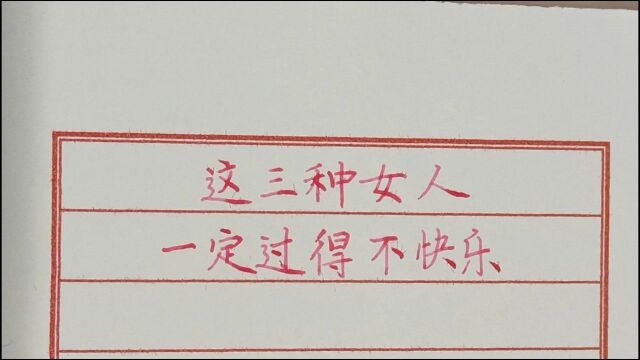 这三种女人
一定过得不快乐